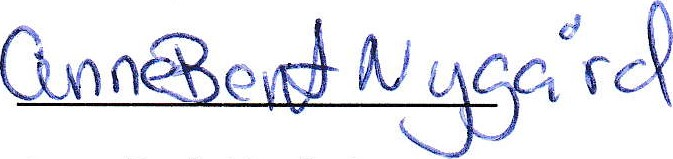 Anne Berit Nygård